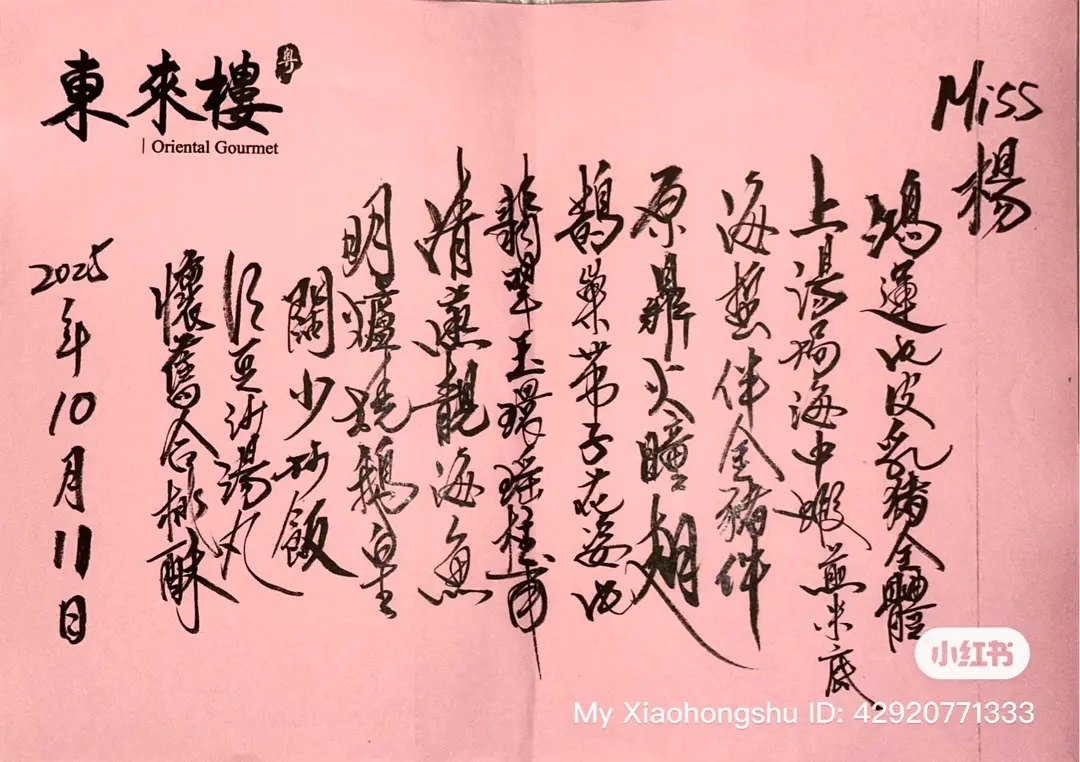 東來樓
粵
Oriental Gourmet
Miss 楊
鴻運化皮乳豬全體
上湯焗海中蝦煎米底
海蜇伴金豬件
原鼎火瞳翅
鵲巢带子花姿仁
翡翠玉環瑤柱甫
清蒸靚海魚
明爐燒鵝皇
闊少炒飯
红豆沙湯丸
懷舊合桃酥
2025年10月11日
小红书
My Xiaohongshu ID: 42920771333